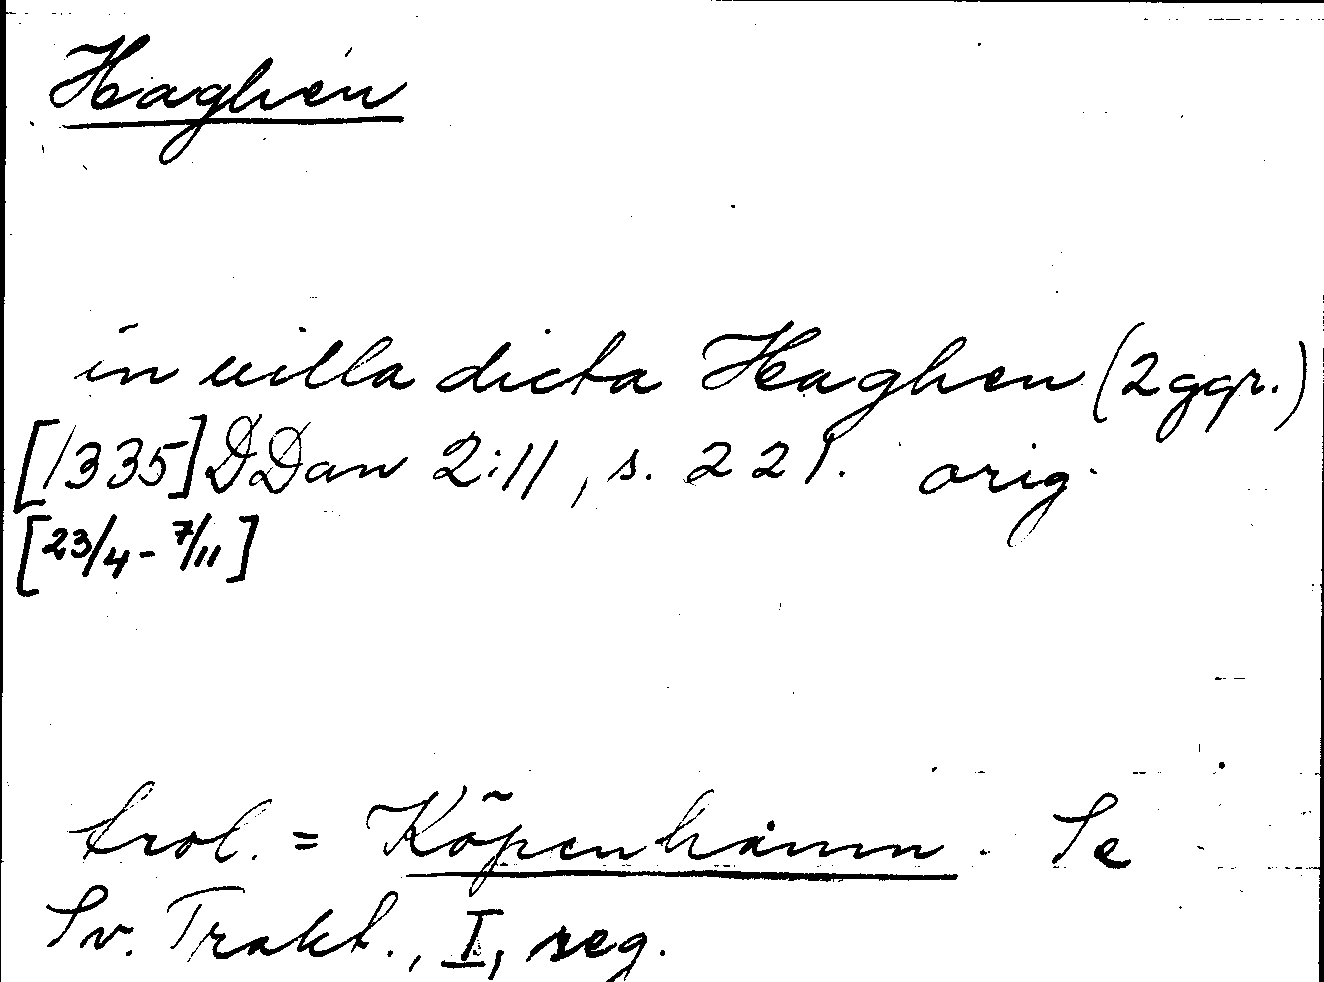 Haghen
in uilla dicta Haghen (2 ggr.)
[1335] DDan 2:11, s. 221. orig.
[23/4 - 7/11]
trol. = Köpenhamn. Se
Sv. Trakt., I, reg.